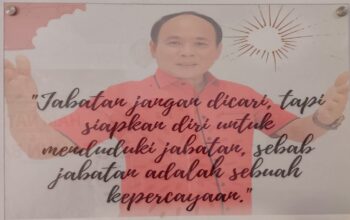 "Jabatan jangan dicari, tapi
siapkan diri untuk
menduduki jabatan, sebab
jabatan adalah sebuah
kepercayaan."